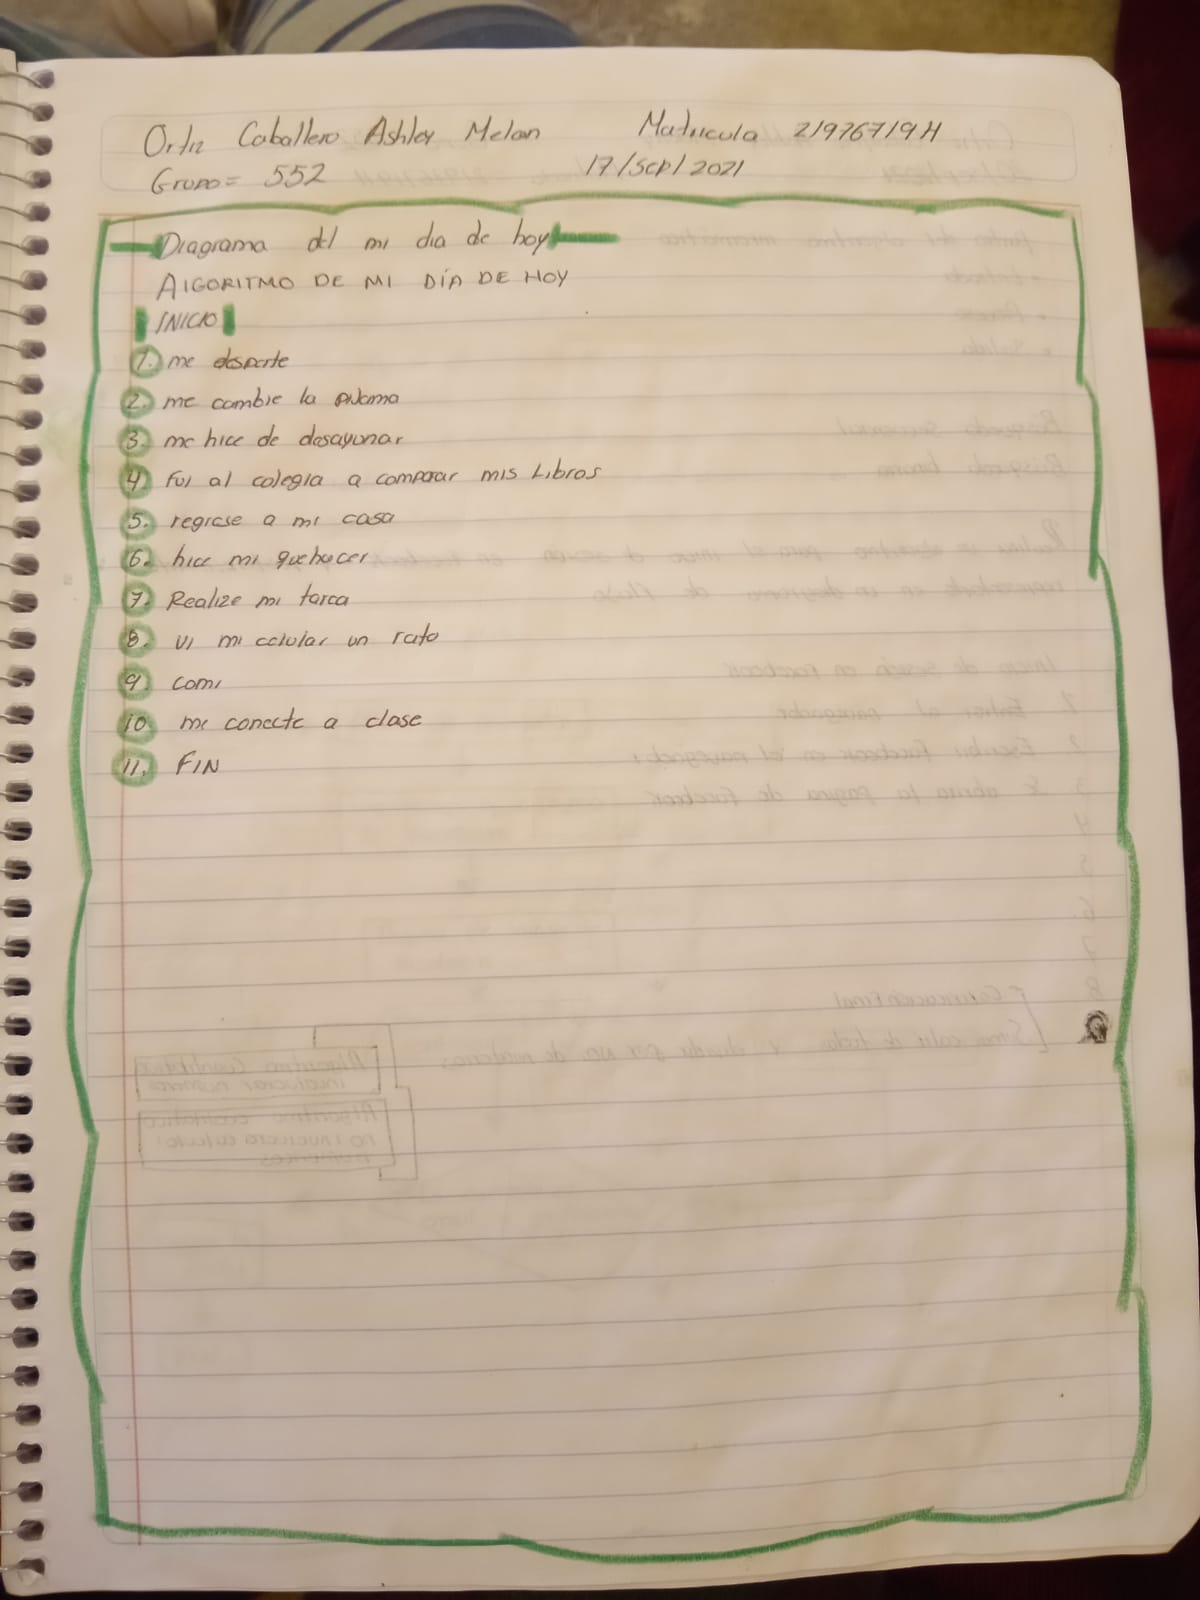 Ortiz Caballero Ashley Melan Matricula 21976719H
Grupo= 552 17/Sep/2021
Diagrama del mi dia de hoy
ALGORITMO DE MI DÍA DE HOY
INICIO
1. me desperte
2. me cambie la pijama
3. me hice de desayunar
4. fui al colegia a comparar mis Libros
5. regrese a mi casa
6. hice mi quehacer
7. Realize mi tarea
8. vi mi celular un rato
9. comi
10. me conecte a clase
11. FIN